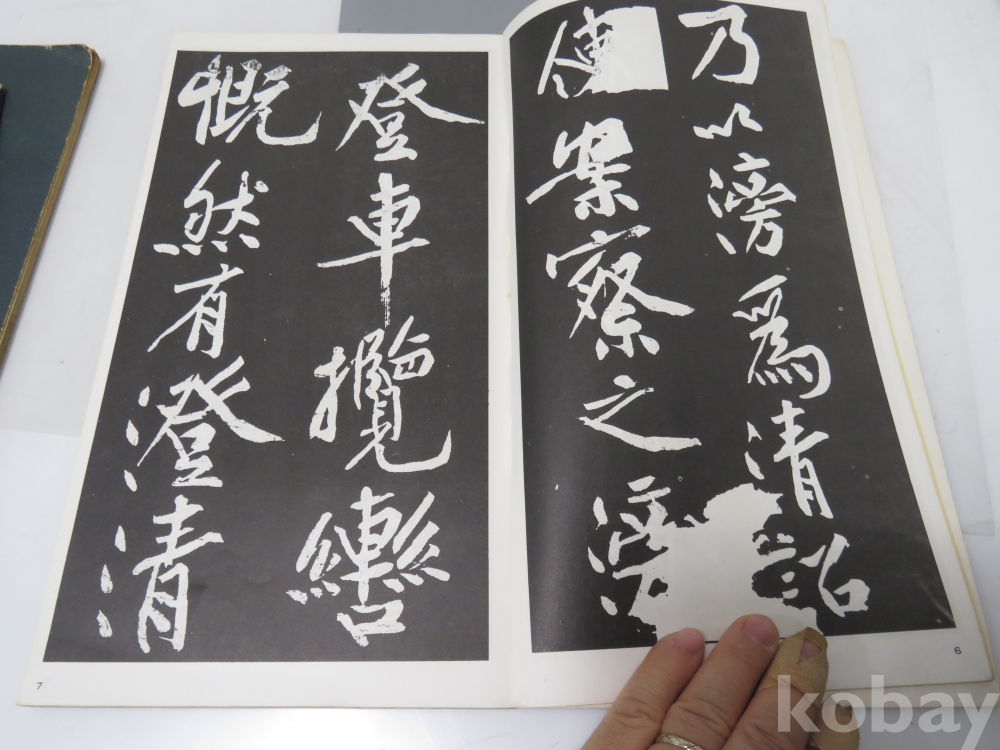 乃以滂為清詔
使案察之滂
登車攬轡
慨然有澄清
6
7
kobay